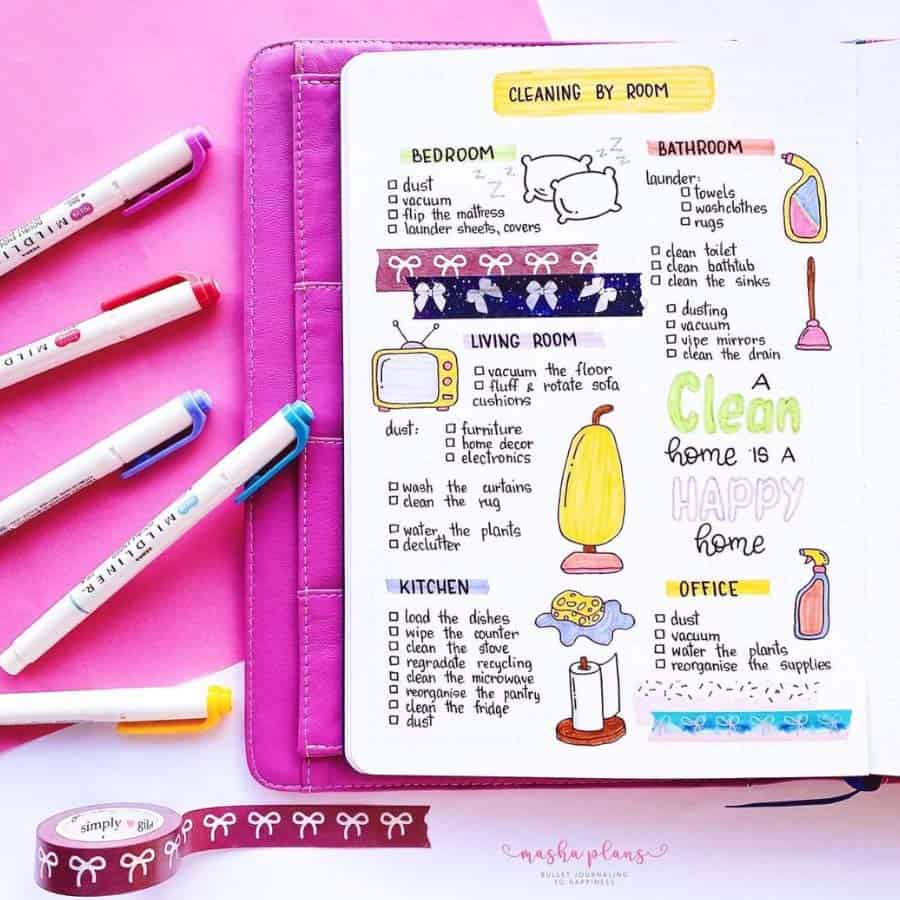 CLEANING BY ROOM
BEDROOM
dust
vacuum
flip the mattress
launder sheets, covers
z z z
z z z
BATHROOM
launder:
towels
washclothes
rugs
clean toilet
clean bathtub
clean the sinks
dusting
vacuum
vipe mirrors
clean the drain
LIVING ROOM
vacuum the floor
fluff & rotate sofa
cushions
dust:
furniture
home decor
electronics
wash the curtains
clean the rug
water the plants
declutter
A
Clean
home IS A
HAPPY
home
KITCHEN
load the dishes
wipe the counter
clean the stove
regradate recycling
clean the microwave
reorganise the pantry
clean the fridge
dust
OFFICE
dust
vacuum
water the plants
reorganise the supplies
MILDLINER
MILD
MILDLINER
simply gild
masha plans
BULLET JOURNALING
TO HAPPINESS